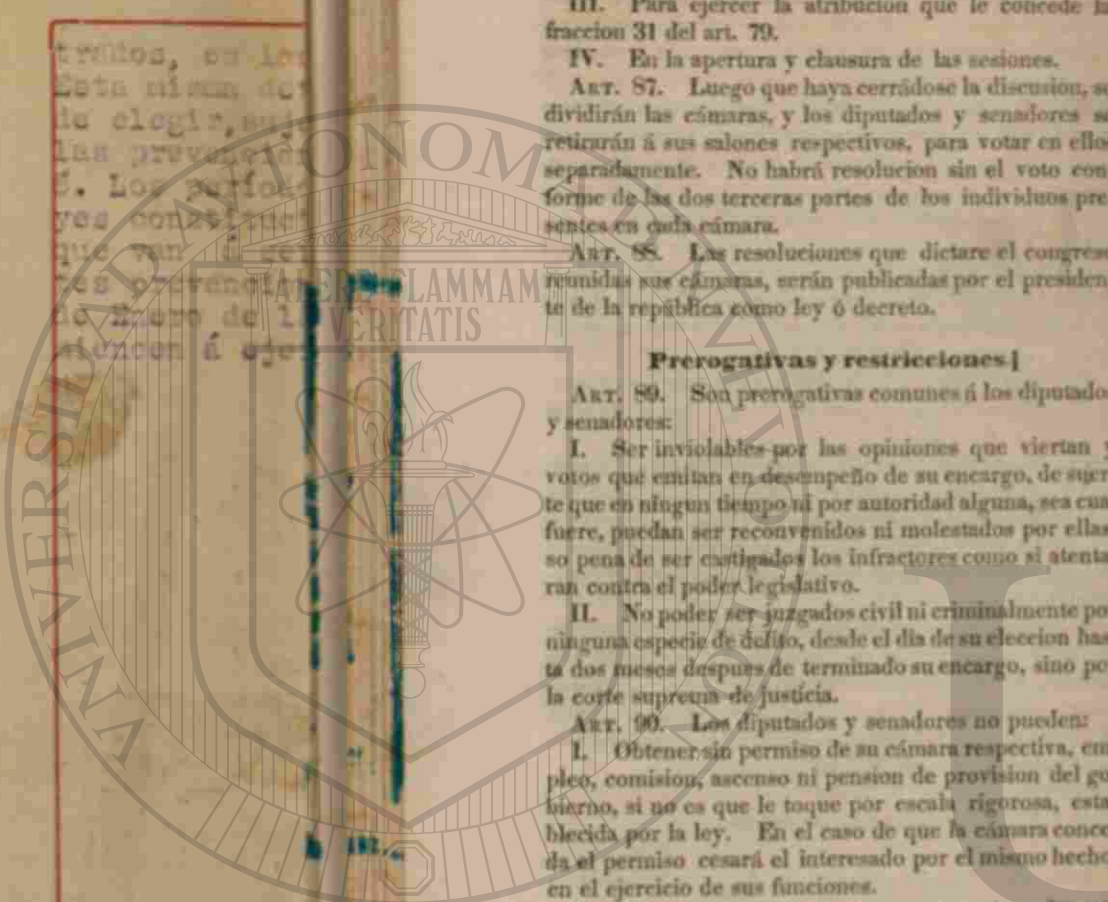 trados, en los
Esta misma de
de elegir, suje
las prevencion
5. Los períod
yes constituci
que van á
tes prevencion
de Enero de 1
miencen á eje
UNIVERSIDAD AUTONOMA DE NUEVO
ALERE FLAMMAM
VERITATIS
III. Para ejercer la atribucion que le concede la
fraccion 31 del art. 79.
IV. En la apertura y clausura de las sesiones.
ART. 87. Luego que haya cerrádose la discusion, se
dividirán las cámaras, y los diputados y senadores se
retirarán á sus salones respectivos, para votar en ellos
separadamente. No habrá resolucion sin el voto con
forme de las dos terceras partes de los individuos pre
sentes en cada cámara.
ART. 88. Las resoluciones que dictare el congreso
reunidas sus cámaras, serán publicadas por el presiden
te de la república como ley ó decreto.
Prerogativas y restricciones.
ART. 89. Son prerogativas comunes á los diputados
y senadores:
I. Ser inviolables por las opiniones que viertan y
votos que emitan en desempeño de su encargo, de suer
te que en ningun tiempo ni por autoridad alguna, sea cua
fuere, puedan ser reconvenidos ni molestados por ellas
so pena de ser castigados los infractores como si atenta
ran contra el poder legislativo.
II. No poder ser juzgados civil ni criminalmente po
ninguna especie de delito, desde el dia de su eleccion has
ta dos meses despues de terminado su encargo, sino po
la corte suprema de justicia.
ART. 90. Los diputados y senadores no pueden:
I. Obtener sin permiso de su cámara respectiva, em
pleo, comision, ascenso ni pension de provision del go
bierno, si no es que le toque por escala rigorosa, esta
blecida por la ley. En el caso de que la cámara conce
da el permiso cesará el interesado por el mismo hecho
en el ejercicio de sus funciones.